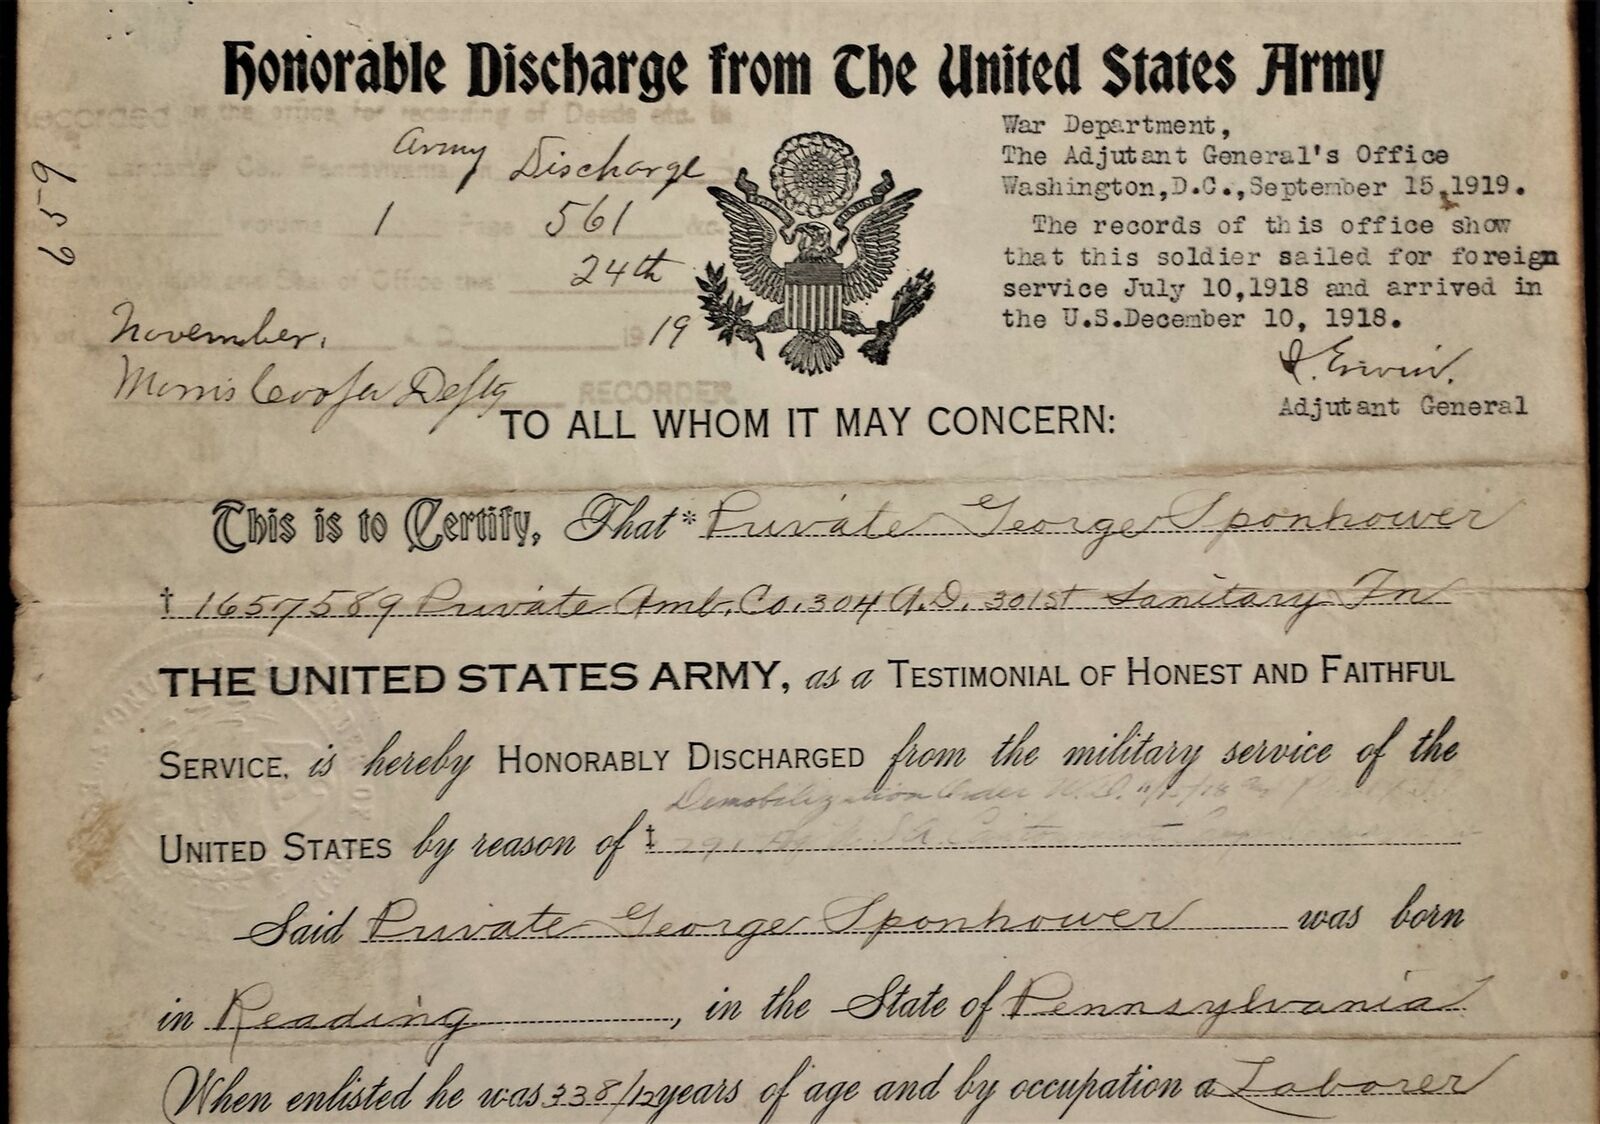 Honorable Discharge from The United States Army
Recorded in the office for recording of Deeds etc. in
Co. Pennsylvania
Army Discharge
Volume 1 Page 561 &c.
and Seal of Office this 24th
November, A.D. 1919
Morris Cooper Depty RECORDER
659
War Department,
The Adjutant General's Office
Washington,D.C.,September 15,1919.
The records of this office show
that this soldier sailed for foreign
service July 10,1918 and arrived in
the U.S.December 10, 1918.
J. Erwin.
Adjutant General
TO ALL WHOM IT MAY CONCERN:
This is to Certify, That* Private George Sponhower
† 1657589 Private Amb. Co. 304 A.D. 301st Sanitary Tn
THE UNITED STATES ARMY, as a TESTIMONIAL OF HONEST AND FAITHFUL
SERVICE, is hereby HONORABLY DISCHARGED from the military service of the
Demobilization Order W.D. 11/15/18
UNITED STATES by reason of ‡
Said Private George Sponhower was born
in Reading, in the State of Pennsylvania
When enlisted he was 33 8/12 years of age and by occupation a Laborer